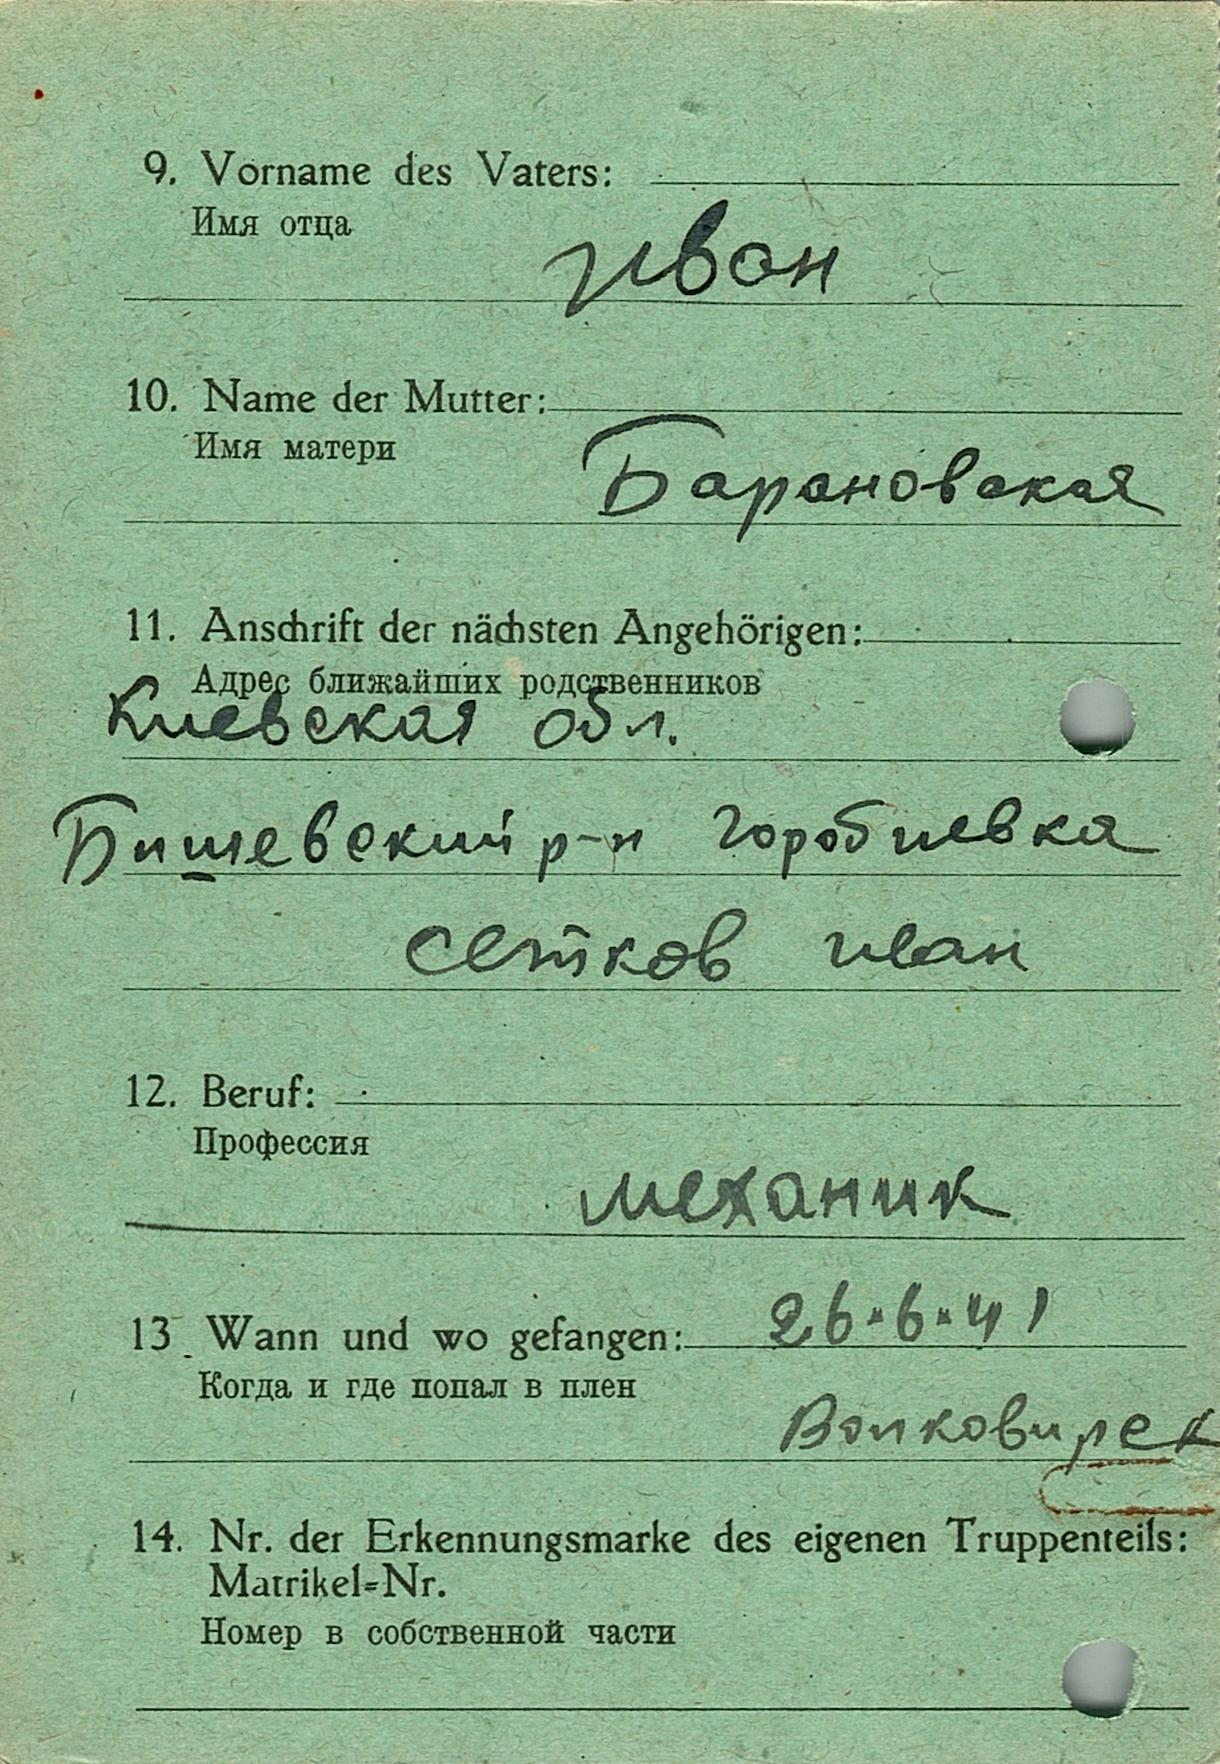 9. Vorname des Vaters:
Имя отца
Иван
10. Name der Mutter:
Имя матери
Барановская
11. Anschrift der nächsten Angehörigen:
Адрес ближайших родственников
Киевская обл.
Бишевский р-н Горобиевка
Сетков Иван
12. Beruf:
Профессия
механик
13. Wann und wo gefangen: 26.6.41
Когда и где попал в плен
Волковирск
14. Nr. der Erkennungsmarke des eigenen Truppenteils:
Matrikel=Nr.
Номер в собственной части